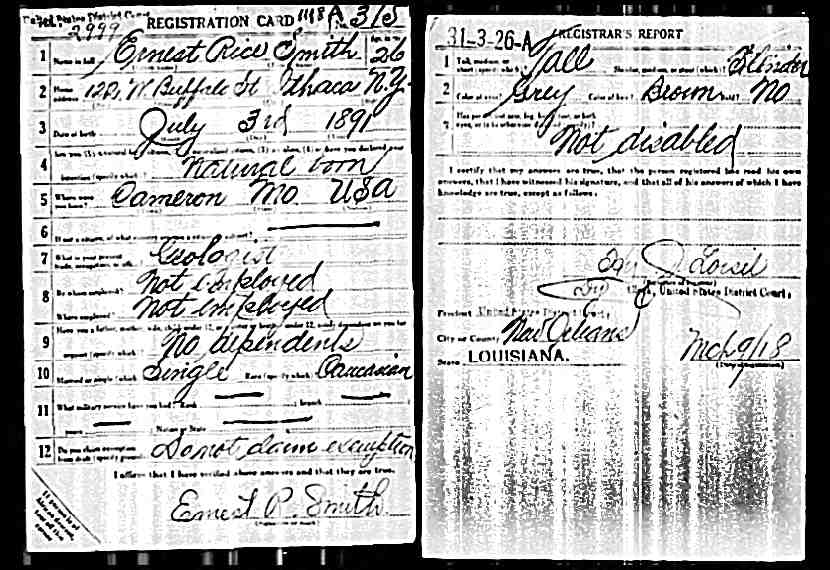 United States District Court
2999 REGISTRATION CARD 1118 A 313
1 Name in full Ernest Rice Smith Age, in yrs. 26
2 Home address W. Buffalo St Ithaca N.Y.
3 Date of birth July 3rd 1891
4 Natural born
5 Where were you born? Cameron Mo. USA
6
7 What is your present trade, occupation, or office? Geologist
8 By whom employed? Not employed
Where employed? Not employed
9 Have you a father, mother, wife, child under 12, or a sister or brother under 12, solely dependent on you for
support (specify which)? No dependents
10 Married or single (which)? Single Race (specify which)? Caucasian
11 What military service have you had? Rank branch
years Nation or State
12 Do you claim exemption from draft (specify grounds)? Do not claim exemption
I affirm that I have verified above answers and that they are true.
Ernest R. Smith
31-3-26-A REGISTRAR'S REPORT
1 Tall, medium, or short (specify which)? Tall Slender, medium, or stout (which)? Slender
2 Color of eyes? Grey Color of hair? Brown Bald? No
3 Not disabled
I certify that my answers are true, that the person registered has read his own
answers, that I have witnessed his signature, and that all of his answers of which I have
knowledge are true, except as follows:
Clerk, United States District Court,
Precinct United States District Court
City or County New Orleans
State LOUISIANA. Mch 9/18